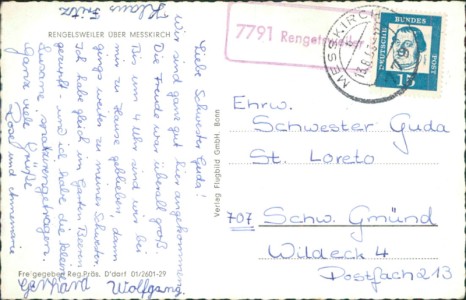 RENGELSWEILER ÜBER MESSKIRCH
Liebe Schwester Guda!
Wir sind ganz gut hier angekommen.
Die Freude war überall groß.
Bis um 4 Uhr sind wir bei
mir zu Hause geblieben, dann
ging's weiter zu meiner Schwester.
Ich habe gleich im Garten Beeren
gezupft - und ich habe die kleine
Susanne spazierengetragen.
Ganz viele Grüße
und Annemarie
Klaus Fritz
Gerhard Wolfgang
Freigegeben Reg. Präs. D'dorf 01/2601-29
Verlag Flugbild GmbH. Bonn
7791 Rengetsweiler
MESSKIRCH
DEUTSCHE BUNDESPOST
15
Ehrw.
Schwester Guda
St. Loreto
707 Schw. Gmünd
Wildeck 4
Postfach 213